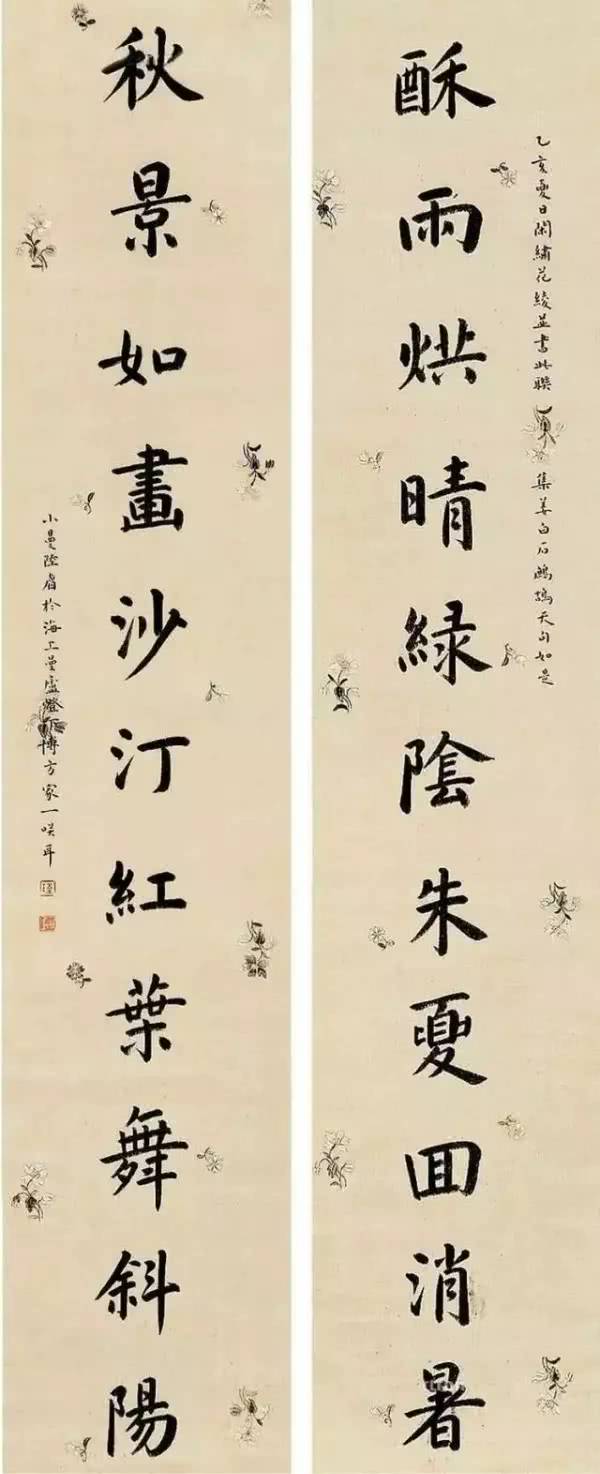 酥雨烘晴綠陰朱夏囬消暑
乙亥夏日閑繡花綾並書此聯 集姜白石鷓鴣天句如是
秋景如畫沙汀紅葉舞斜陽
小曼陸眉於海上曼廬燈下博方家一咲耳